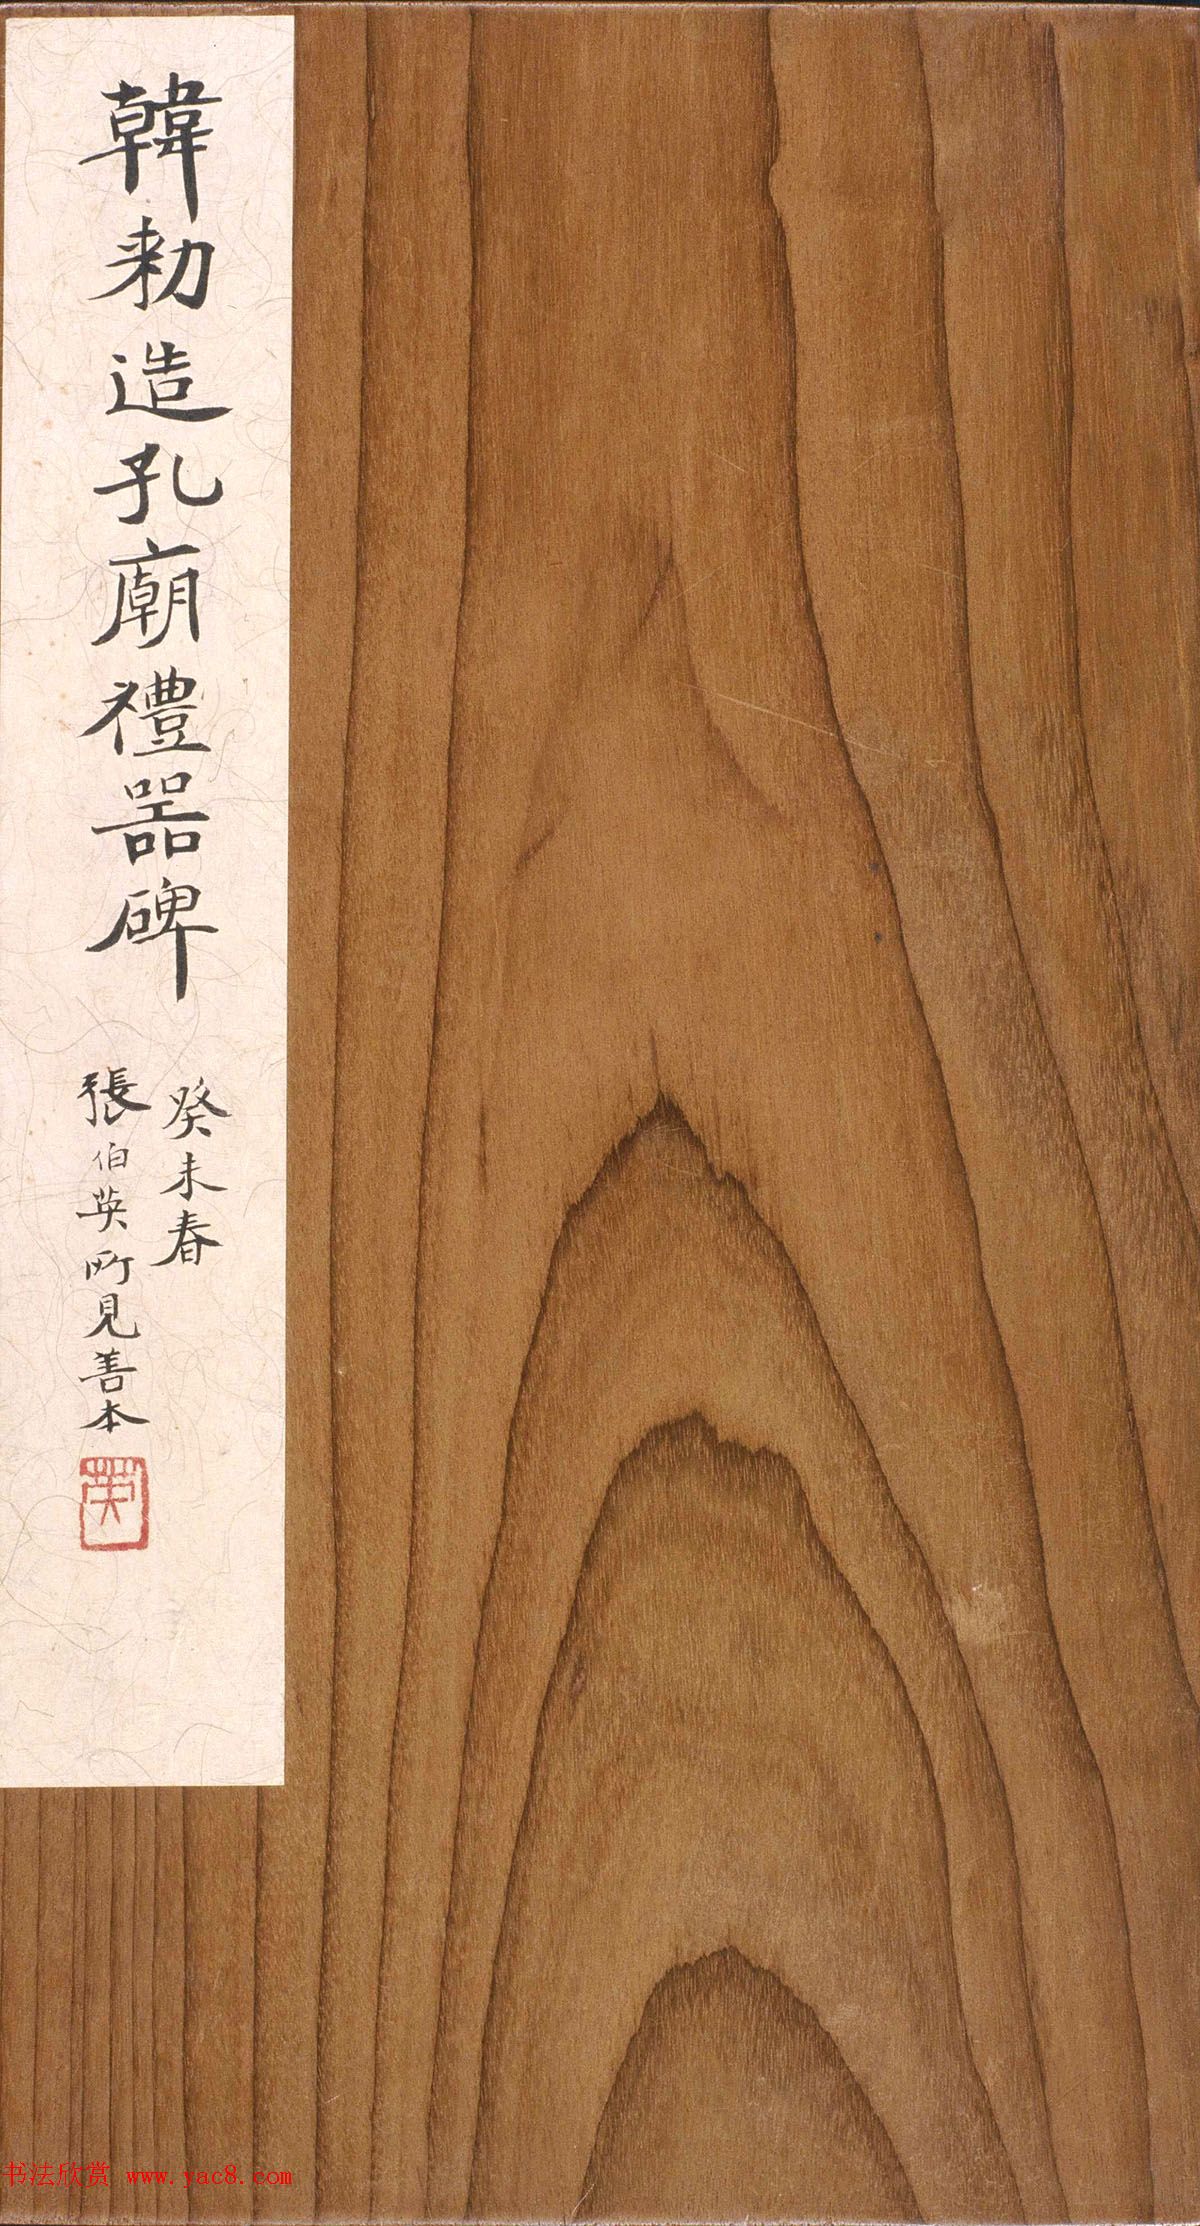 韓勑造孔廟禮器碑
癸未春
張伯英所見善本
英
书法欣赏 www.yac8.com